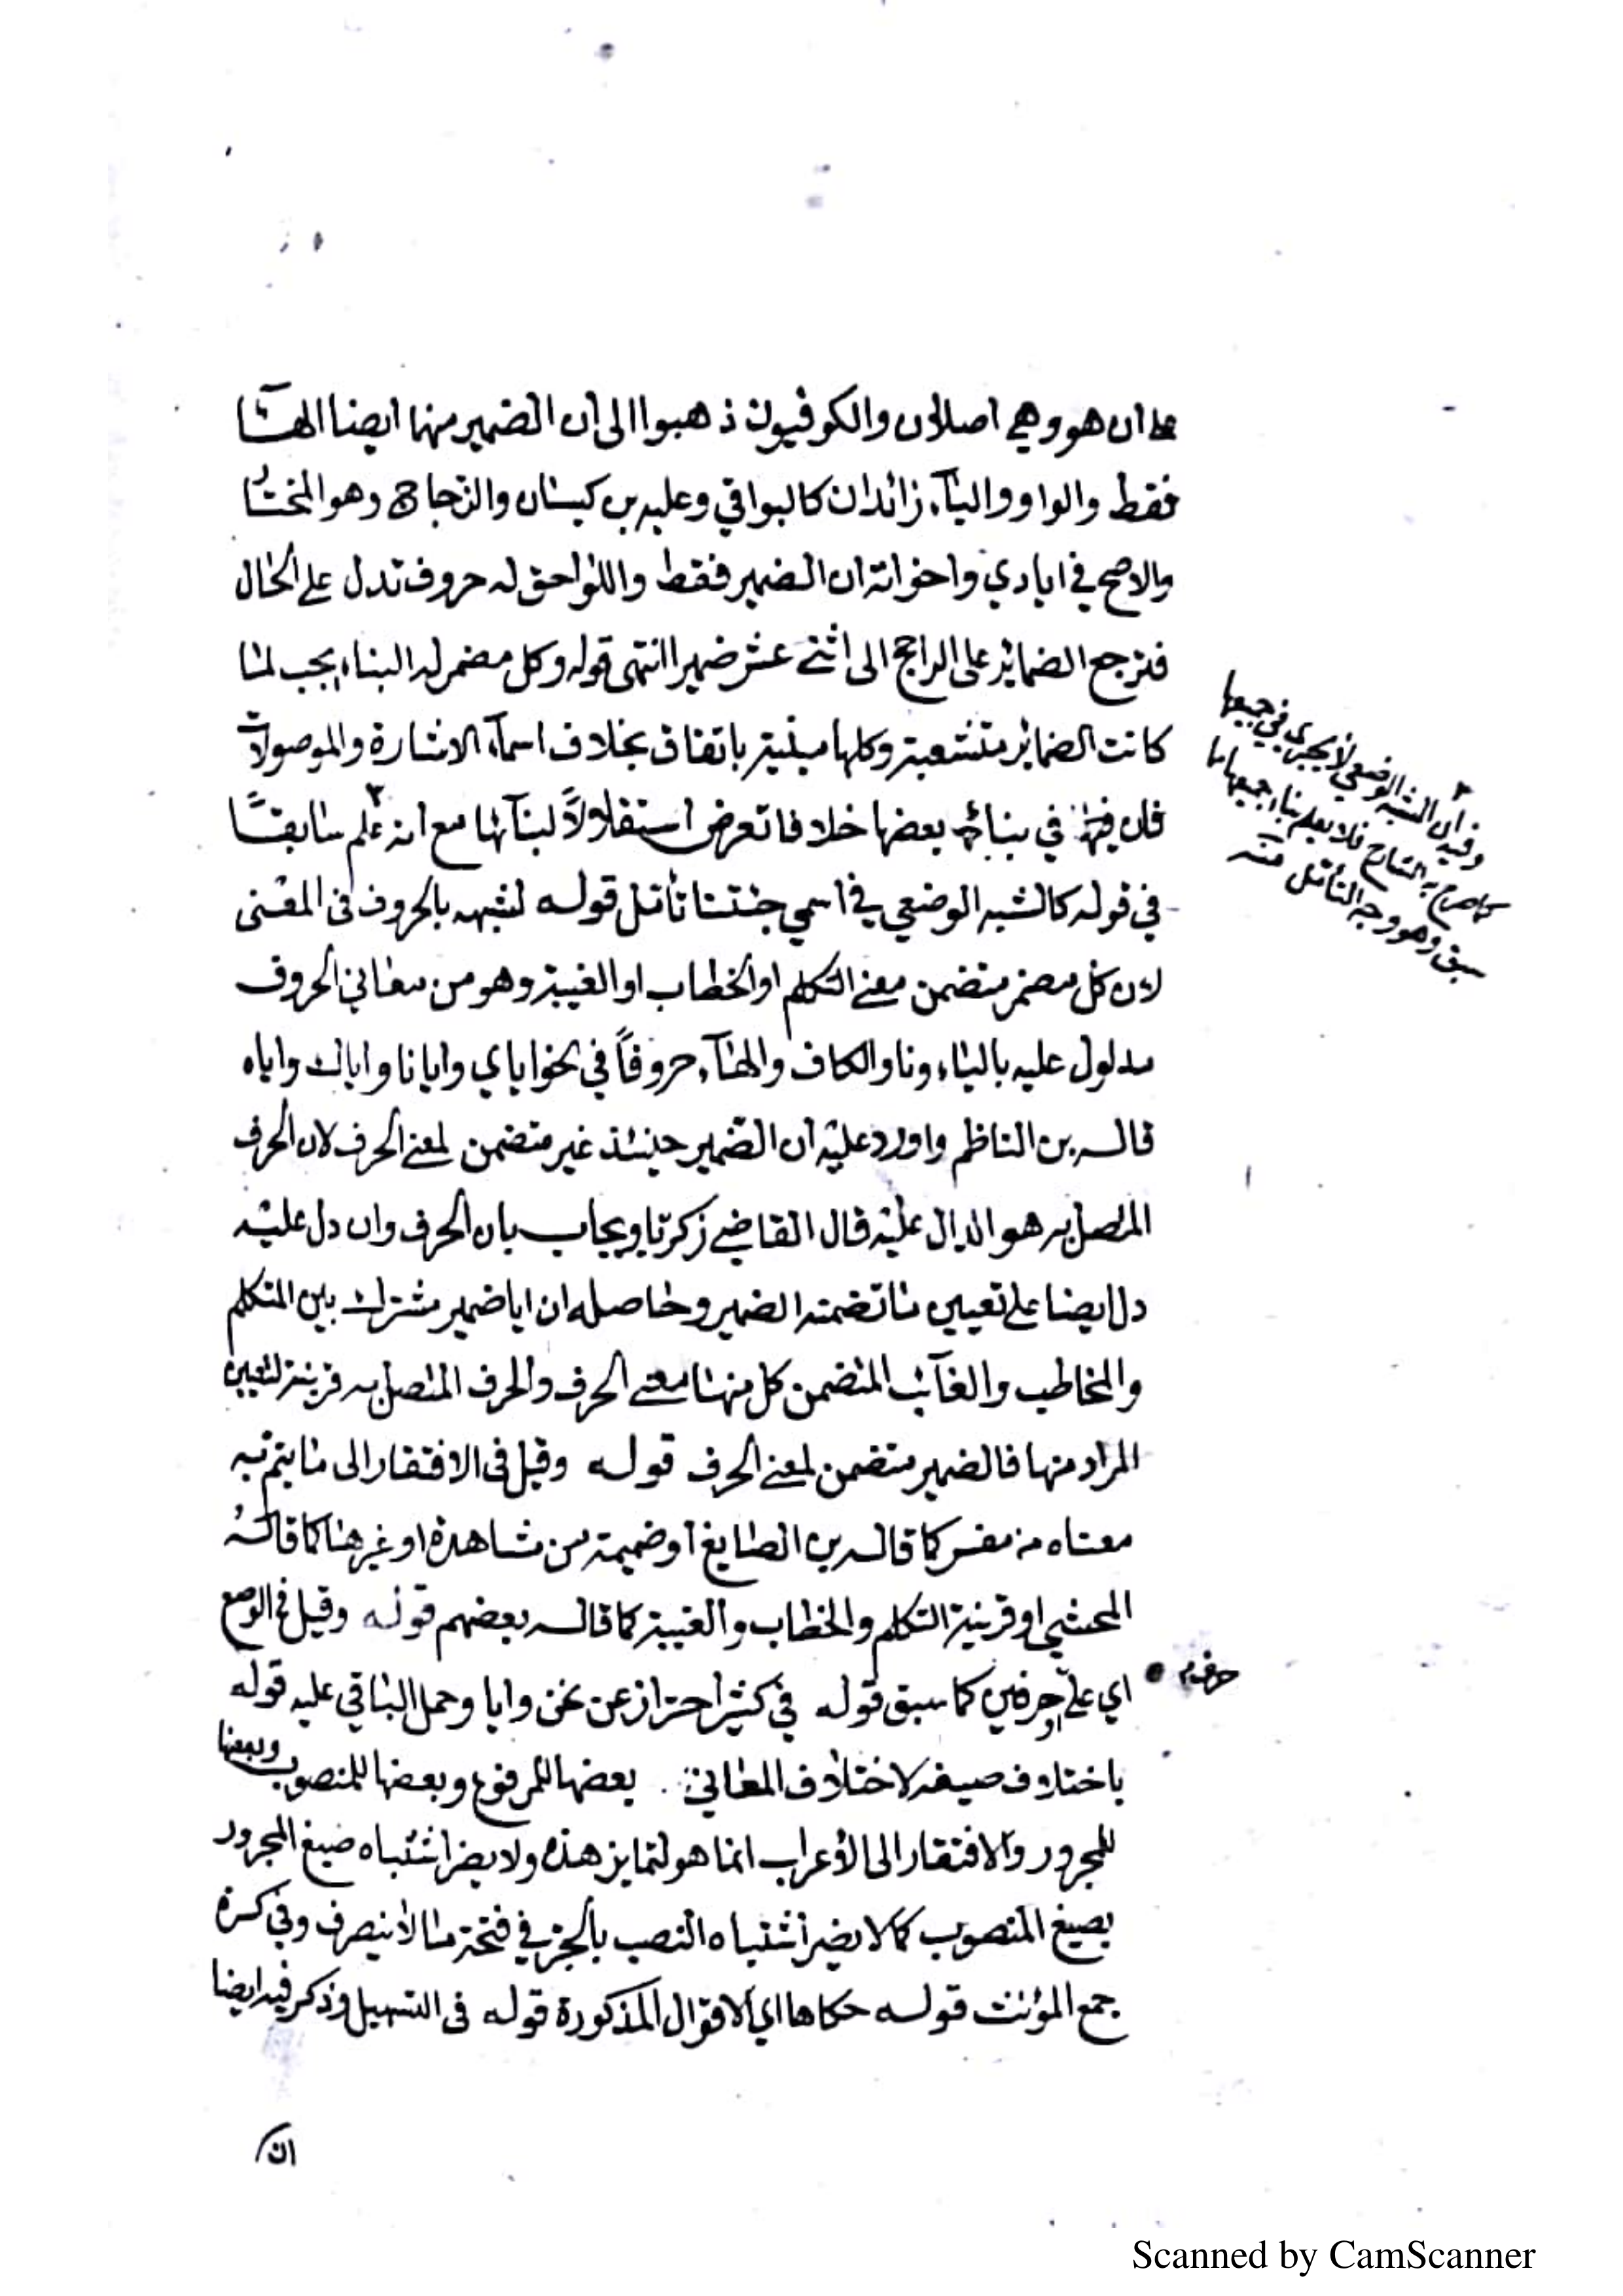 على ان هو وهي اصلان والكوفيون ذهبوا الى ان الضمير منها ايضا الهآ
فقط والواو والياء زائدان كالبواقي وعليه بن كيسان والزجاج وهو المختار
والاصح في اياي واخواته ان الضمير فقط واللواحق له حروف تدل على الحال
فترجع الضمائر على الراجح الى اثنى عشر ضميرا انتهى قوله وكل مضمر له البناء يجب لما
كانت الضمائر متشعبة وكلها مبنية باتفاق بخلاف اسمآء الاشارة والموصولات
فان في بناء بعضها خلافا تعرض استقلالاً لبنآئها مع انه علم سابقاً
في قوله كالشبه الوضعي في اسمي جئتنا تأمل قوله لشبهه بالحروف في المعنى
لان كل مضمر متضمن معنى التكلم او الخطاب او الغيبة وهو من معاني الحروف
مدلول عليه بالياء ونا والكاف والهآء حروفاً في نحو اياي وايانا واياك واياه
قاله بن الناظم واورد عليه ان الضمير حينئذ غير متضمن لمعنى الحرف لان الحرف
المتصل به هو الدال عليه قال القاضي زكريا ويجاب بان الحرف وان دل عليه
دل ايضا على تعيين ما تضمنه الضمير وحاصله ان ايا ضمير مشترك بين المتكلم
والمخاطب والغآئب المتضمن كل منها معنى الحرف والحرف المتصل به قرينة لتعيين
المراد منها فالضمير متضمن لمعنى الحرف قوله وقيل في الافتقار الى ما يتم به
معناه من مفسر كما قاله بن الصايغ او ضميمة من مشاهدة او غيرها كما قاله
المحشي او قرينة التكلم والخطاب والغيبة كما قاله بعضهم قوله وقيل في الوضع
اي على حرفين كما سبق قوله في كثير احتراز عن نحن وايا وحمل الباقي عليه قوله
حرف
باختلاف صيغه لاختلاف المعاني بعضها للمرفوع وبعضها للمنصوب وبعضها
للمجرور والافتقار الى الاعراب انما هو لتمايز هذه ولا يضر اشتباه صيغ المجرور
بصيغ المنصوب كما لا يضر اشتباه النصب بالجر في فتحة ما لا ينصرف وفي كسرة
جمع المؤنث قوله حكاها اي الاقوال المذكورة قوله في التسهيل وذكر فيه ايضا
ان
وفيه ان الشبه الوضعي لا يجري في جميعها
كما صرح به الشارح فلا يعلم بناء جميعها مما
سبق وهو وجه التأمل منه
Scanned by CamScanner